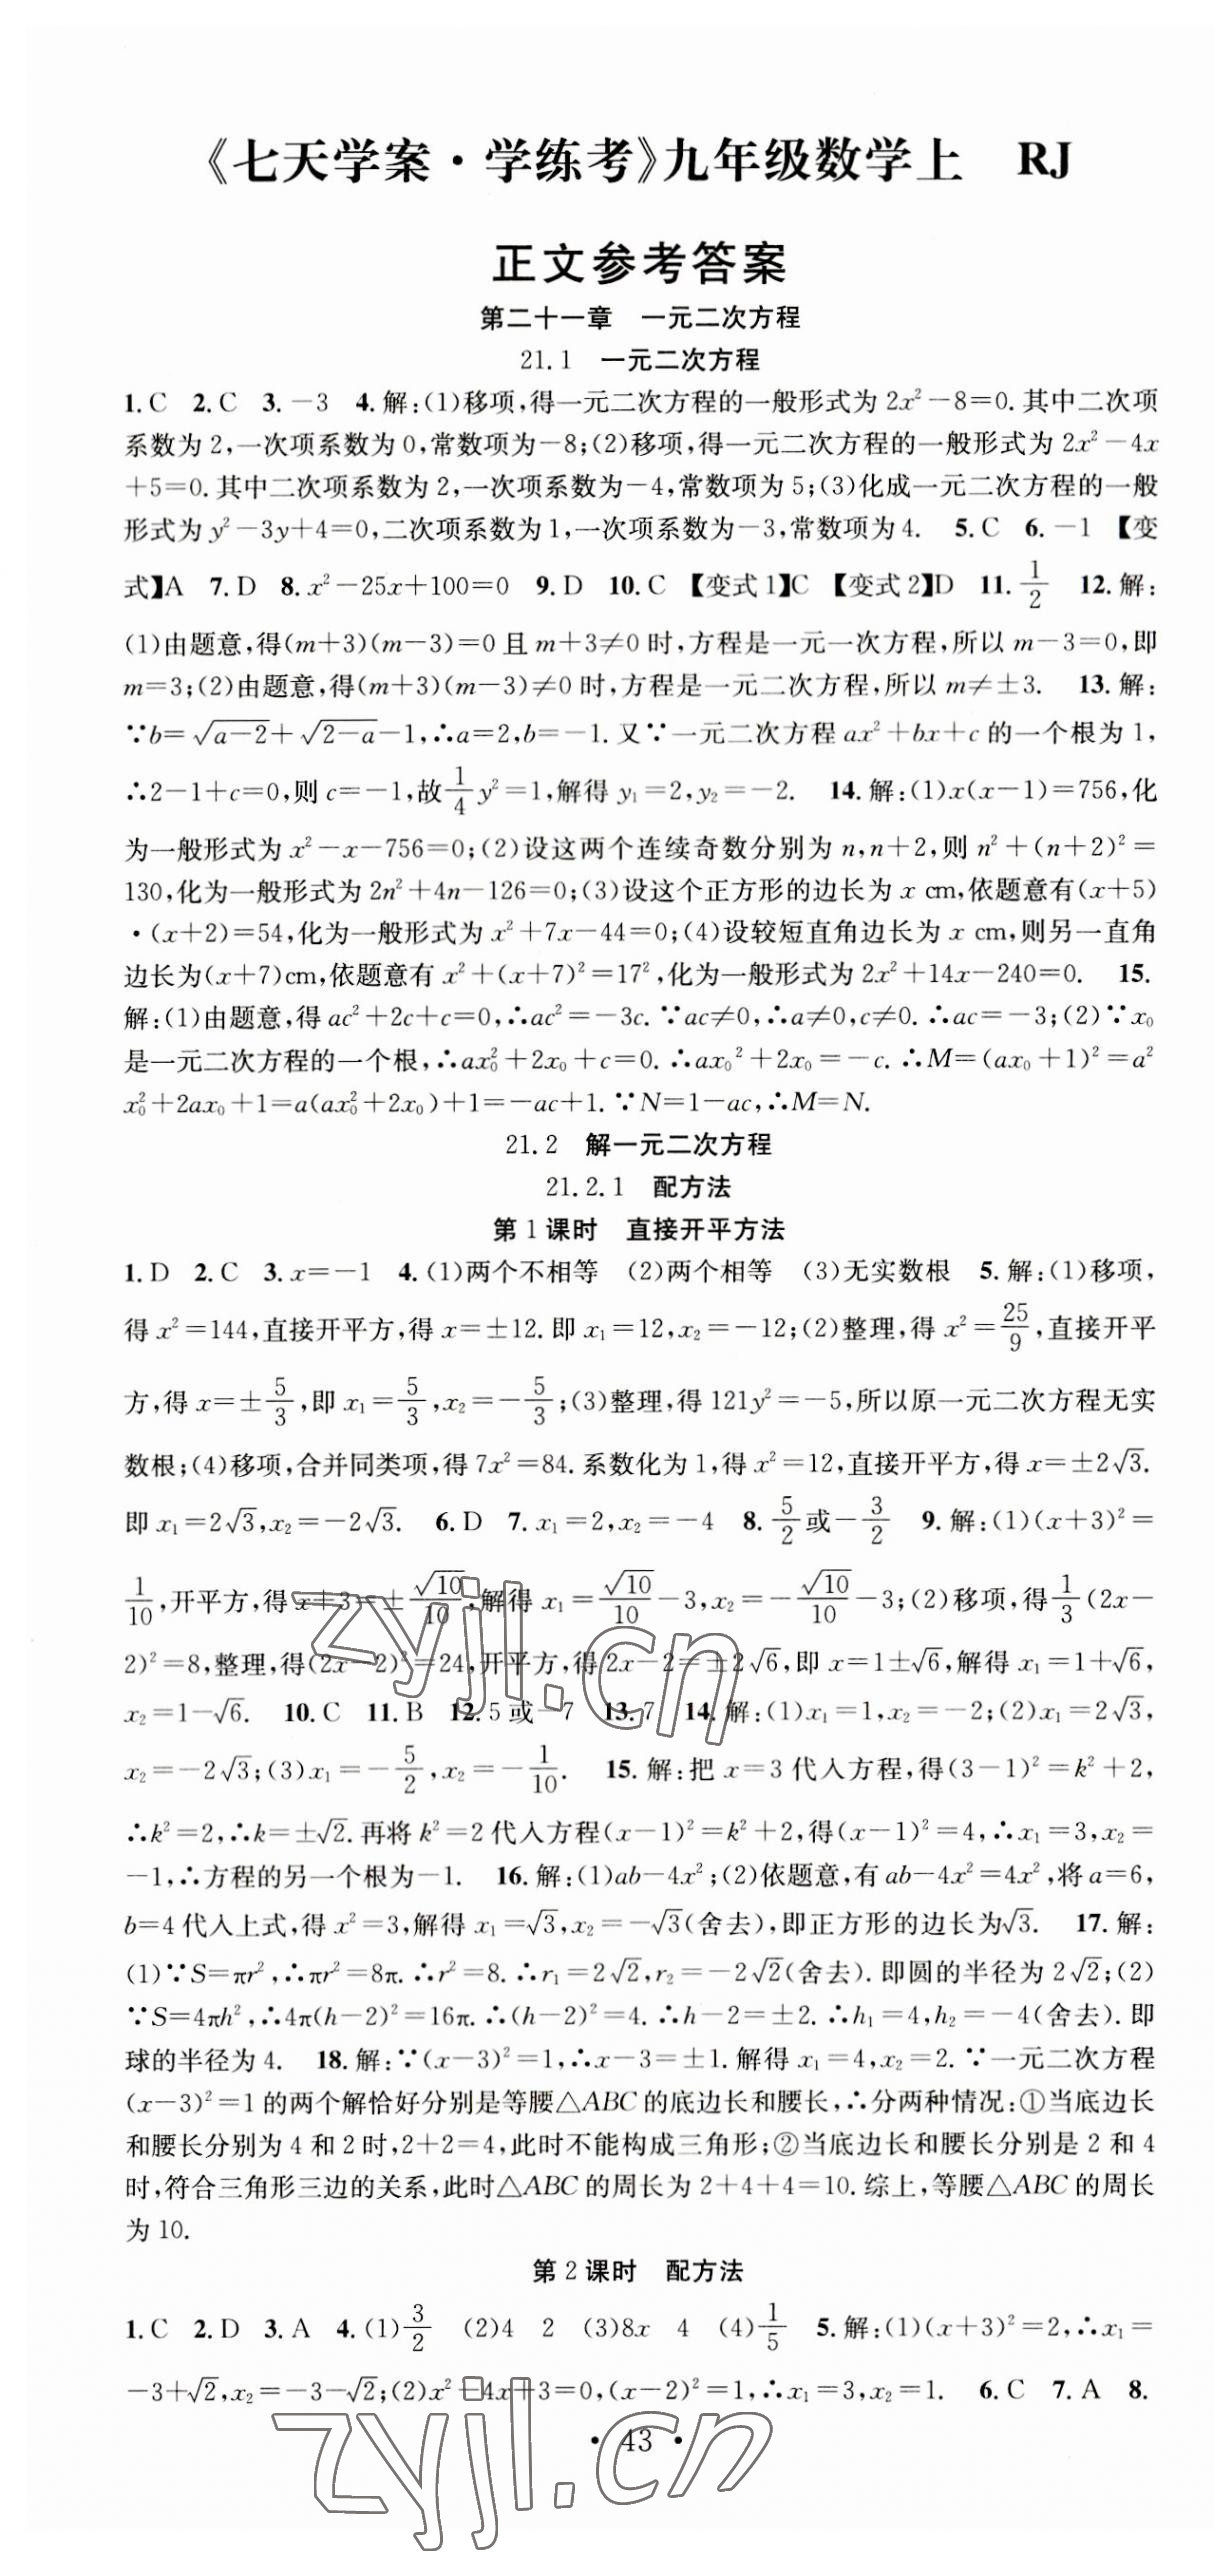 《七天学案·学练考》九年级数学上 RJ
正文参考答案
第二十一章 一元二次方程
21.1 一元二次方程
1.C 2.C 3.－3 4.解:(1)移项,得一元二次方程的一般形式为2x²－8=0.其中二次项
系数为2,一次项系数为0,常数项为－8;(2)移项,得一元二次方程的一般形式为2x²－4x
＋5=0.其中二次项系数为2,一次项系数为－4,常数项为5;(3)化成一元二次方程的一般
形式为y²－3y＋4=0,二次项系数为1,一次项系数为－3,常数项为4. 5.C 6.－1 【变
式】A 7.D 8.x²－25x＋100=0 9.D 10.C 【变式1】C 【变式2】D 11.1/2 12.解:
(1)由题意,得(m＋3)(m－3)=0且m＋3≠0时,方程是一元一次方程,所以m－3=0,即
m=3;(2)由题意,得(m＋3)(m－3)≠0时,方程是一元二次方程,所以m≠±3. 13.解:
∵b=√(a－2)＋√(2－a)－1,∴a=2,b=－1.又∵一元二次方程ax²＋bx＋c的一个根为1,
∴2－1＋c=0,则c=－1,故1/4y²=1,解得y₁=2,y₂=－2. 14.解:(1)x(x－1)=756,化
为一般形式为x²－x－756=0;(2)设这两个连续奇数分别为n,n＋2,则n²＋(n＋2)²=
130,化为一般形式为2n²＋4n－126=0;(3)设这个正方形的边长为x cm,依题意有(x＋5)
·(x＋2)=54,化为一般形式为x²＋7x－44=0;(4)设较短直角边长为x cm,则另一直角
边长为(x＋7)cm,依题意有x²＋(x＋7)²=17²,化为一般形式为2x²＋14x－240=0. 15.
解:(1)由题意,得ac²＋2c＋c=0,∴ac²=－3c.∵ac≠0,∴a≠0,c≠0.∴ac=－3;(2)∵x₀
是一元二次方程的一个根,∴ax₀²＋2x₀＋c=0.∴ax₀²＋2x₀=－c.∴M=(ax₀＋1)²=a²
x₀²＋2ax₀＋1=a(ax₀²＋2x₀)＋1=－ac＋1.∵N=1－ac,∴M=N.
21.2 解一元二次方程
21.2.1 配方法
第1课时 直接开平方法
1.D 2.C 3.x=－1 4.(1)两个不相等 (2)两个相等 (3)无实数根 5.解:(1)移项,
得x²=144,直接开平方,得x=±12.即x₁=12,x₂=－12;(2)整理,得x²=25/9,直接开平
方,得x=±5/3,即x₁=5/3,x₂=－5/3;(3)整理,得121y²=－5,所以原一元二次方程无实
数根;(4)移项,合并同类项,得7x²=84.系数化为1,得x²=12,直接开平方,得x=±2√3.
即x₁=2√3,x₂=－2√3. 6.D 7.x₁=2,x₂=－4 8.5/2或－3/2 9.解:(1)(x＋3)²=
1/10,开平方,得x＋3=±√10/10,解得x₁=√10/10－3,x₂=－√10/10－3;(2)移项,得1/3(2x－
2)²=8,整理,得(2x－2)²=24,开平方,得2x－2=±2√6,即x=1±√6,解得x₁=1＋√6,
x₂=1－√6. 10.C 11.B 12.5或－7 13.7 14.解:(1)x₁=1,x₂=－2;(2)x₁=2√3,
x₂=－2√3;(3)x₁=－5/2,x₂=－1/10. 15.解:把x=3代入方程,得(3－1)²=k²＋2,
∴k²=2,∴k=±√2.再将k²=2代入方程(x－1)²=k²＋2,得(x－1)²=4,∴x₁=3,x₂=
－1,∴方程的另一个根为－1. 16.解:(1)ab－4x²;(2)依题意,有ab－4x²=4x²,将a=6,
b=4代入上式,得x²=3,解得x₁=√3,x₂=－√3(舍去),即正方形的边长为√3. 17.解:
(1)∵S=πr²,∴πr²=8π.∴r²=8.∴r₁=2√2,r₂=－2√2(舍去).即圆的半径为2√2;(2)
∵S=4πh²,∴4π(h－2)²=16π.∴(h－2)²=4.∴h－2=±2.∴h₁=4,h₂=－4(舍去).即
球的半径为4. 18.解:∵(x－3)²=1,∴x－3=±1.解得x₁=4,x₂=2.∵一元二次方程
(x－3)²=1的两个解恰好分别是等腰△ABC的底边长和腰长,∴分两种情况:①当底边长
和腰长分别为4和2时,2＋2=4,此时不能构成三角形;②当底边长和腰长分别是2和4
时,符合三角形三边的关系,此时△ABC的周长为2＋4＋4=10.综上,等腰△ABC的周长
为10.
第2课时 配方法
1.C 2.D 3.A 4.(1)3/2 (2)4 2 (3)8x 4 (4)1/5 5.解:(1)(x＋3)²=2,∴x₁=
－3＋√2,x₂=－3－√2;(2)x²－4x＋3=0,(x－2)²=1,∴x₁=3,x₂=1. 6.C 7.A 8.
·43·
zyjl.cn
zyjl.cn